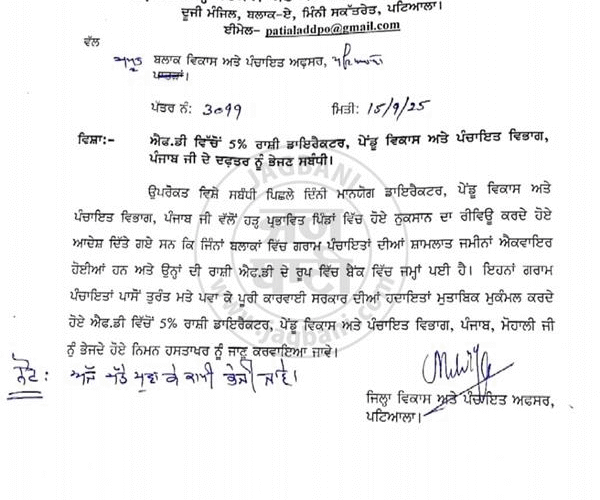 ਦੂਜੀ ਮੰਜਿਲ, ਬਲਾਕ-ਏ, ਮਿੰਨੀ ਸਕੱਤਰੇਤ, ਪਟਿਆਲਾ।
ਈਮੇਲ- patialaddpo@gmail.com
ਵੱਲ
ਸਮੂਹ ਬਲਾਕ ਵਿਕਾਸ ਅਤੇ ਪੰਚਾਇਤ ਅਫਸਰ,
ਪੱਤਰ ਨੰ: 3099 ਮਿਤੀ: 15/9/25
ਵਿਸ਼ਾ:- ਐਫ.ਡੀ ਵਿੱਚੋਂ 5% ਰਾਸ਼ੀ ਡਾਇਰੈਕਟਰ, ਪੇਂਡੂ ਵਿਕਾਸ ਅਤੇ ਪੰਚਾਇਤ ਵਿਭਾਗ,
ਪੰਜਾਬ ਜੀ ਦੇ ਦਫ਼ਤਰ ਨੂੰ ਭੇਜਣ ਸਬੰਧੀ।
ਉਪਰੋਕਤ ਵਿਸ਼ੇ ਸਬੰਧੀ ਪਿਛਲੇ ਦਿੰਨੀ ਮਾਨਯੋਗ ਡਾਇਰੈਕਟਰ, ਪੇਂਡੂ ਵਿਕਾਸ ਅਤੇ
ਪੰਚਾਇਤ ਵਿਭਾਗ, ਪੰਜਾਬ ਜੀ ਵੱਲੋਂ ਹੜ੍ਹ ਪ੍ਰਭਾਵਿਤ ਪਿੰਡਾਂ ਵਿੱਚ ਹੋਏ ਨੁਕਸਾਨ ਦਾ ਰੀਵਿਊ ਕਰਦੇ ਹੋਏ
ਆਦੇਸ਼ ਦਿੱਤੇ ਗਏ ਸਨ ਕਿ ਜਿੰਨਾਂ ਬਲਾਕਾਂ ਵਿੱਚ ਗਰਾਮ ਪੰਚਾਇਤਾਂ ਦੀਆਂ ਸ਼ਾਮਲਾਤ ਜਮੀਨਾਂ ਐਕਵਾਇਰ
ਹੋਈਆਂ ਹਨ ਅਤੇ ਉਨ੍ਹਾਂ ਦੀ ਰਾਸ਼ੀ ਐਫ.ਡੀ ਦੇ ਰੂਪ ਵਿੱਚ ਬੈਂਕ ਵਿੱਚ ਜਮ੍ਹਾਂ ਪਈ ਹੈ। ਇਹਨਾਂ ਗਰਾਮ
ਪੰਚਾਇਤਾਂ ਪਾਸੋਂ ਤੁਰੰਤ ਮਤੇ ਪਵਾ ਕੇ ਪੂਰੀ ਕਾਰਵਾਈ ਸਰਕਾਰ ਦੀਆਂ ਹਦਾਇਤਾਂ ਮੁਤਾਬਿਕ ਮੁਕੰਮਲ ਕਰਦੇ
ਹੋਏ ਐਫ.ਡੀ ਵਿੱਚੋਂ 5% ਰਾਸ਼ੀ ਡਾਇਰੈਕਟਰ, ਪੇਂਡੂ ਵਿਕਾਸ ਅਤੇ ਪੰਚਾਇਤ ਵਿਭਾਗ, ਪੰਜਾਬ, ਮੋਹਾਲੀ ਜੀ
ਨੂੰ ਭੇਜਦੇ ਹੋਏ ਨਿਮਨ ਹਸਤਾਖਰ ਨੂੰ ਜਾਣੂ ਕਰਵਾਇਆ ਜਾਵੇ।
ਨੋਟ: ਅੱਜ ਮਤੇ ਪਵਾ ਕੇ ਕਾਪੀ ਭੇਜੀ ਜਾਵੇ।
ਜਿਲ੍ਹਾ ਵਿਕਾਸ ਅਤੇ ਪੰਚਾਇਤ ਅਫਸਰ,
ਪਟਿਆਲਾ।
JAGBANI
ਜਗ ਬਾਣੀ
www.jagbani.com